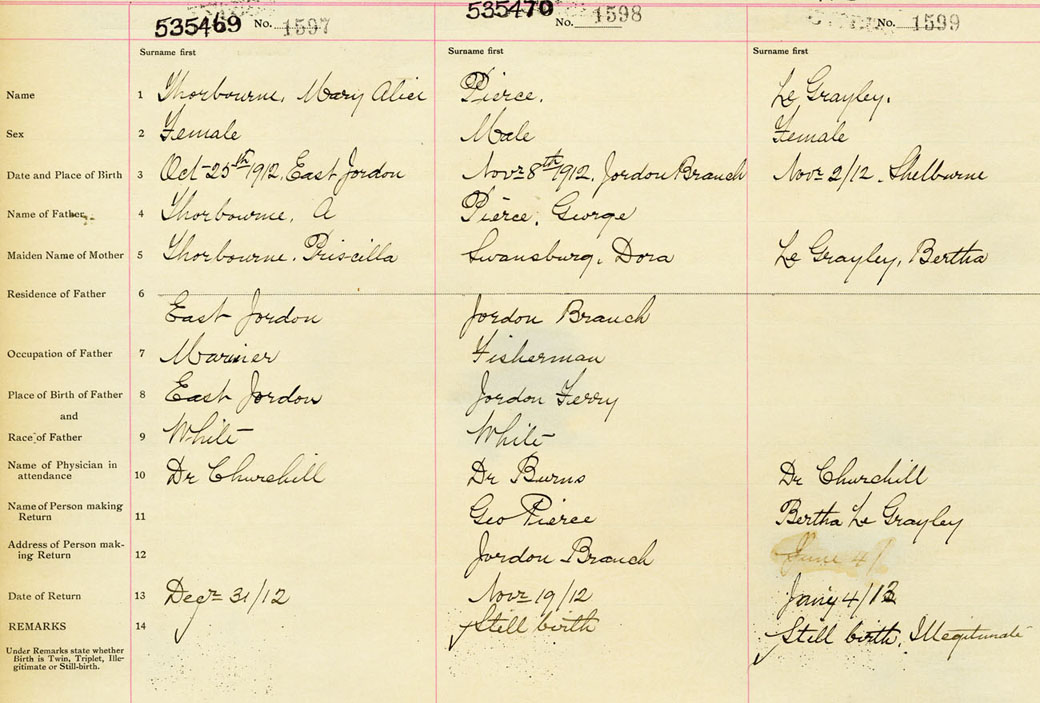 535469 No. 1597 535470 No. 1598 No. 1599
Surname first Surname first Surname first
Name 1 Thorbourne, Mary Alice Pierce. Le Grayley.
Sex 2 Female Male Female
Date and Place of Birth 3 Oct 25th 1912, East Jordon Novr 8th 1912, Jordon Branch Novr 2/12. Shelburne
Name of Father 4 Thorbourne, A Pierce, George
Maiden Name of Mother 5 Thorbourne. Priscilla Swansburg, Dora Le Grayley, Bertha
Residence of Father 6
East Jordon Jordon Branch
Occupation of Father 7 Mariner Fisherman
Place of Birth of Father 8 East Jordon Jordon Ferry
and
Race of Father 9 White White
Name of Physician in
attendance 10 Dr Churchill Dr Burns Dr Churchill
Name of Person making
Return 11 Geo Pierce Bertha Le Grayley
Address of Person mak-
ing Return 12 Jordon Branch
Date of Return 13 Decr 31/12 Novr 19/12 Jany 4/13
REMARKS 14 Still birth Still birth, Illegitimate
Under Remarks state whether
Birth is Twin, Triplet, Ille-
gitimate or Still-birth.